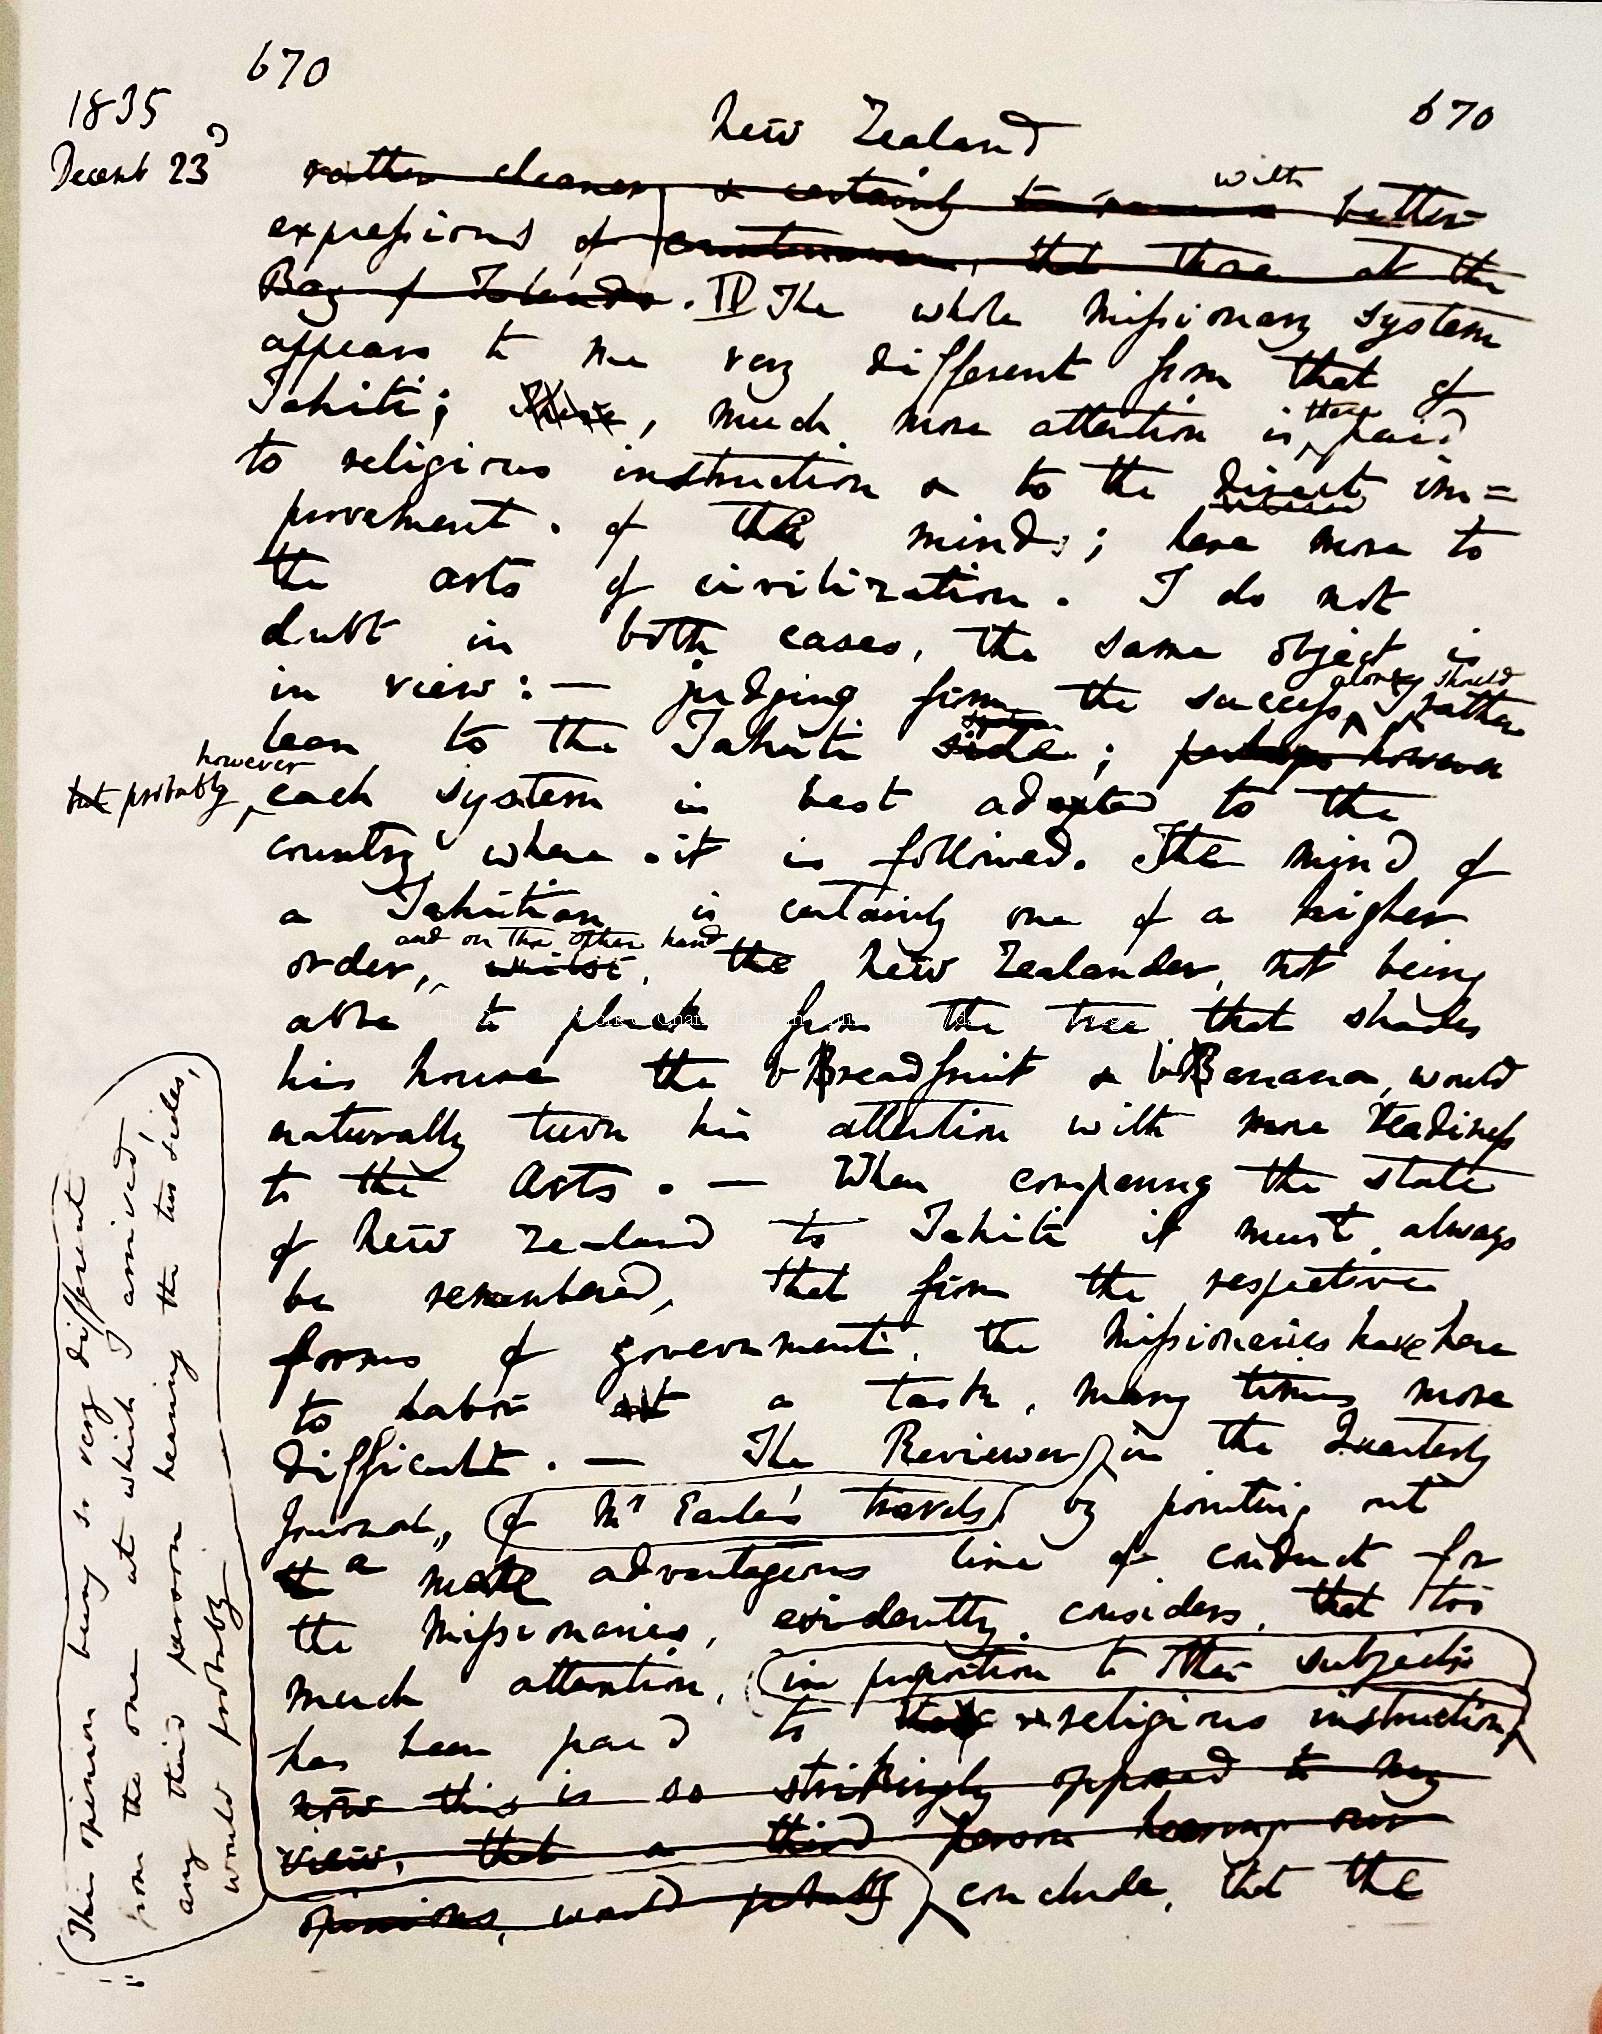 670
1835
New Zealand
670
Decemb 23d
with
rather cleaner, & certainly better
expressions of countenances, than those at the
Bay of Islands. IV The whole Missionary system
appears to me very different from that of
Tahiti; there, much more attention is there paid
to religious instruction & to the direct im=
provement. of the minds; here more to
the arts of civilization. I do not
dubt in both cases, the same object is
in view:— judging from the success alone, I should rather
lean to the Tahiti side; perhaps however
but probably however each system is best adapted to the
country where it is followed. The mind of
a Tahitian is certainly one of a higher
and on the other hand
order, whilst, the New Zealander, not being
able to pluck from the tree that shades
his house the Breadfruit & Banana, would
naturally turn his attention with more readiness
to the Arts. — When comparing the state
of New Zealand to Tahiti it must always
be remembered, that from the respective
forms of government, the Missionaries have here
to labor at a task, many times more
difficult. — The Reviewer in the Quarterly
Journal, of Mr Earle's travels, by pointing out
a more advantageous line of conduct for
the Missionaries, evidently considers, that too
much attention, in proportion to other subjects
has been paid to religious instruction,
now this is so strikingly opposed to my
view, that a third person hearing our
opinions, would probably conclude, that the
This opinion being so very different
from the one at which I arrived,
any third person hearing the two sides,
would probably